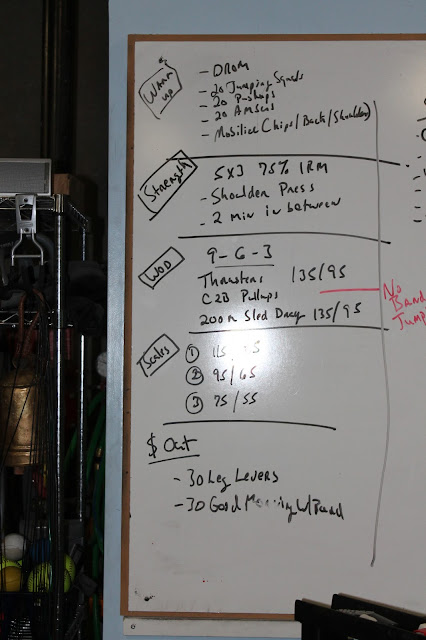 Warm up
- DROM
- 20 Jumping Squads
- 20 Pushups
- 20 AMSUs
- Mobilize (hips/Back/Shoulder)
Strength
5x3 75% 1RM
- Shoulder Press
- 2 min in between
WOD
9-6-3
Thrusters 135/95
C2B Pullups
200m Sled Drag 135/95
No
Band
Jump
Scales
① 115/75
② 95/65
③ 75/55
$ Out
- 30 Leg Levers
- 30 Good Morning w/Band